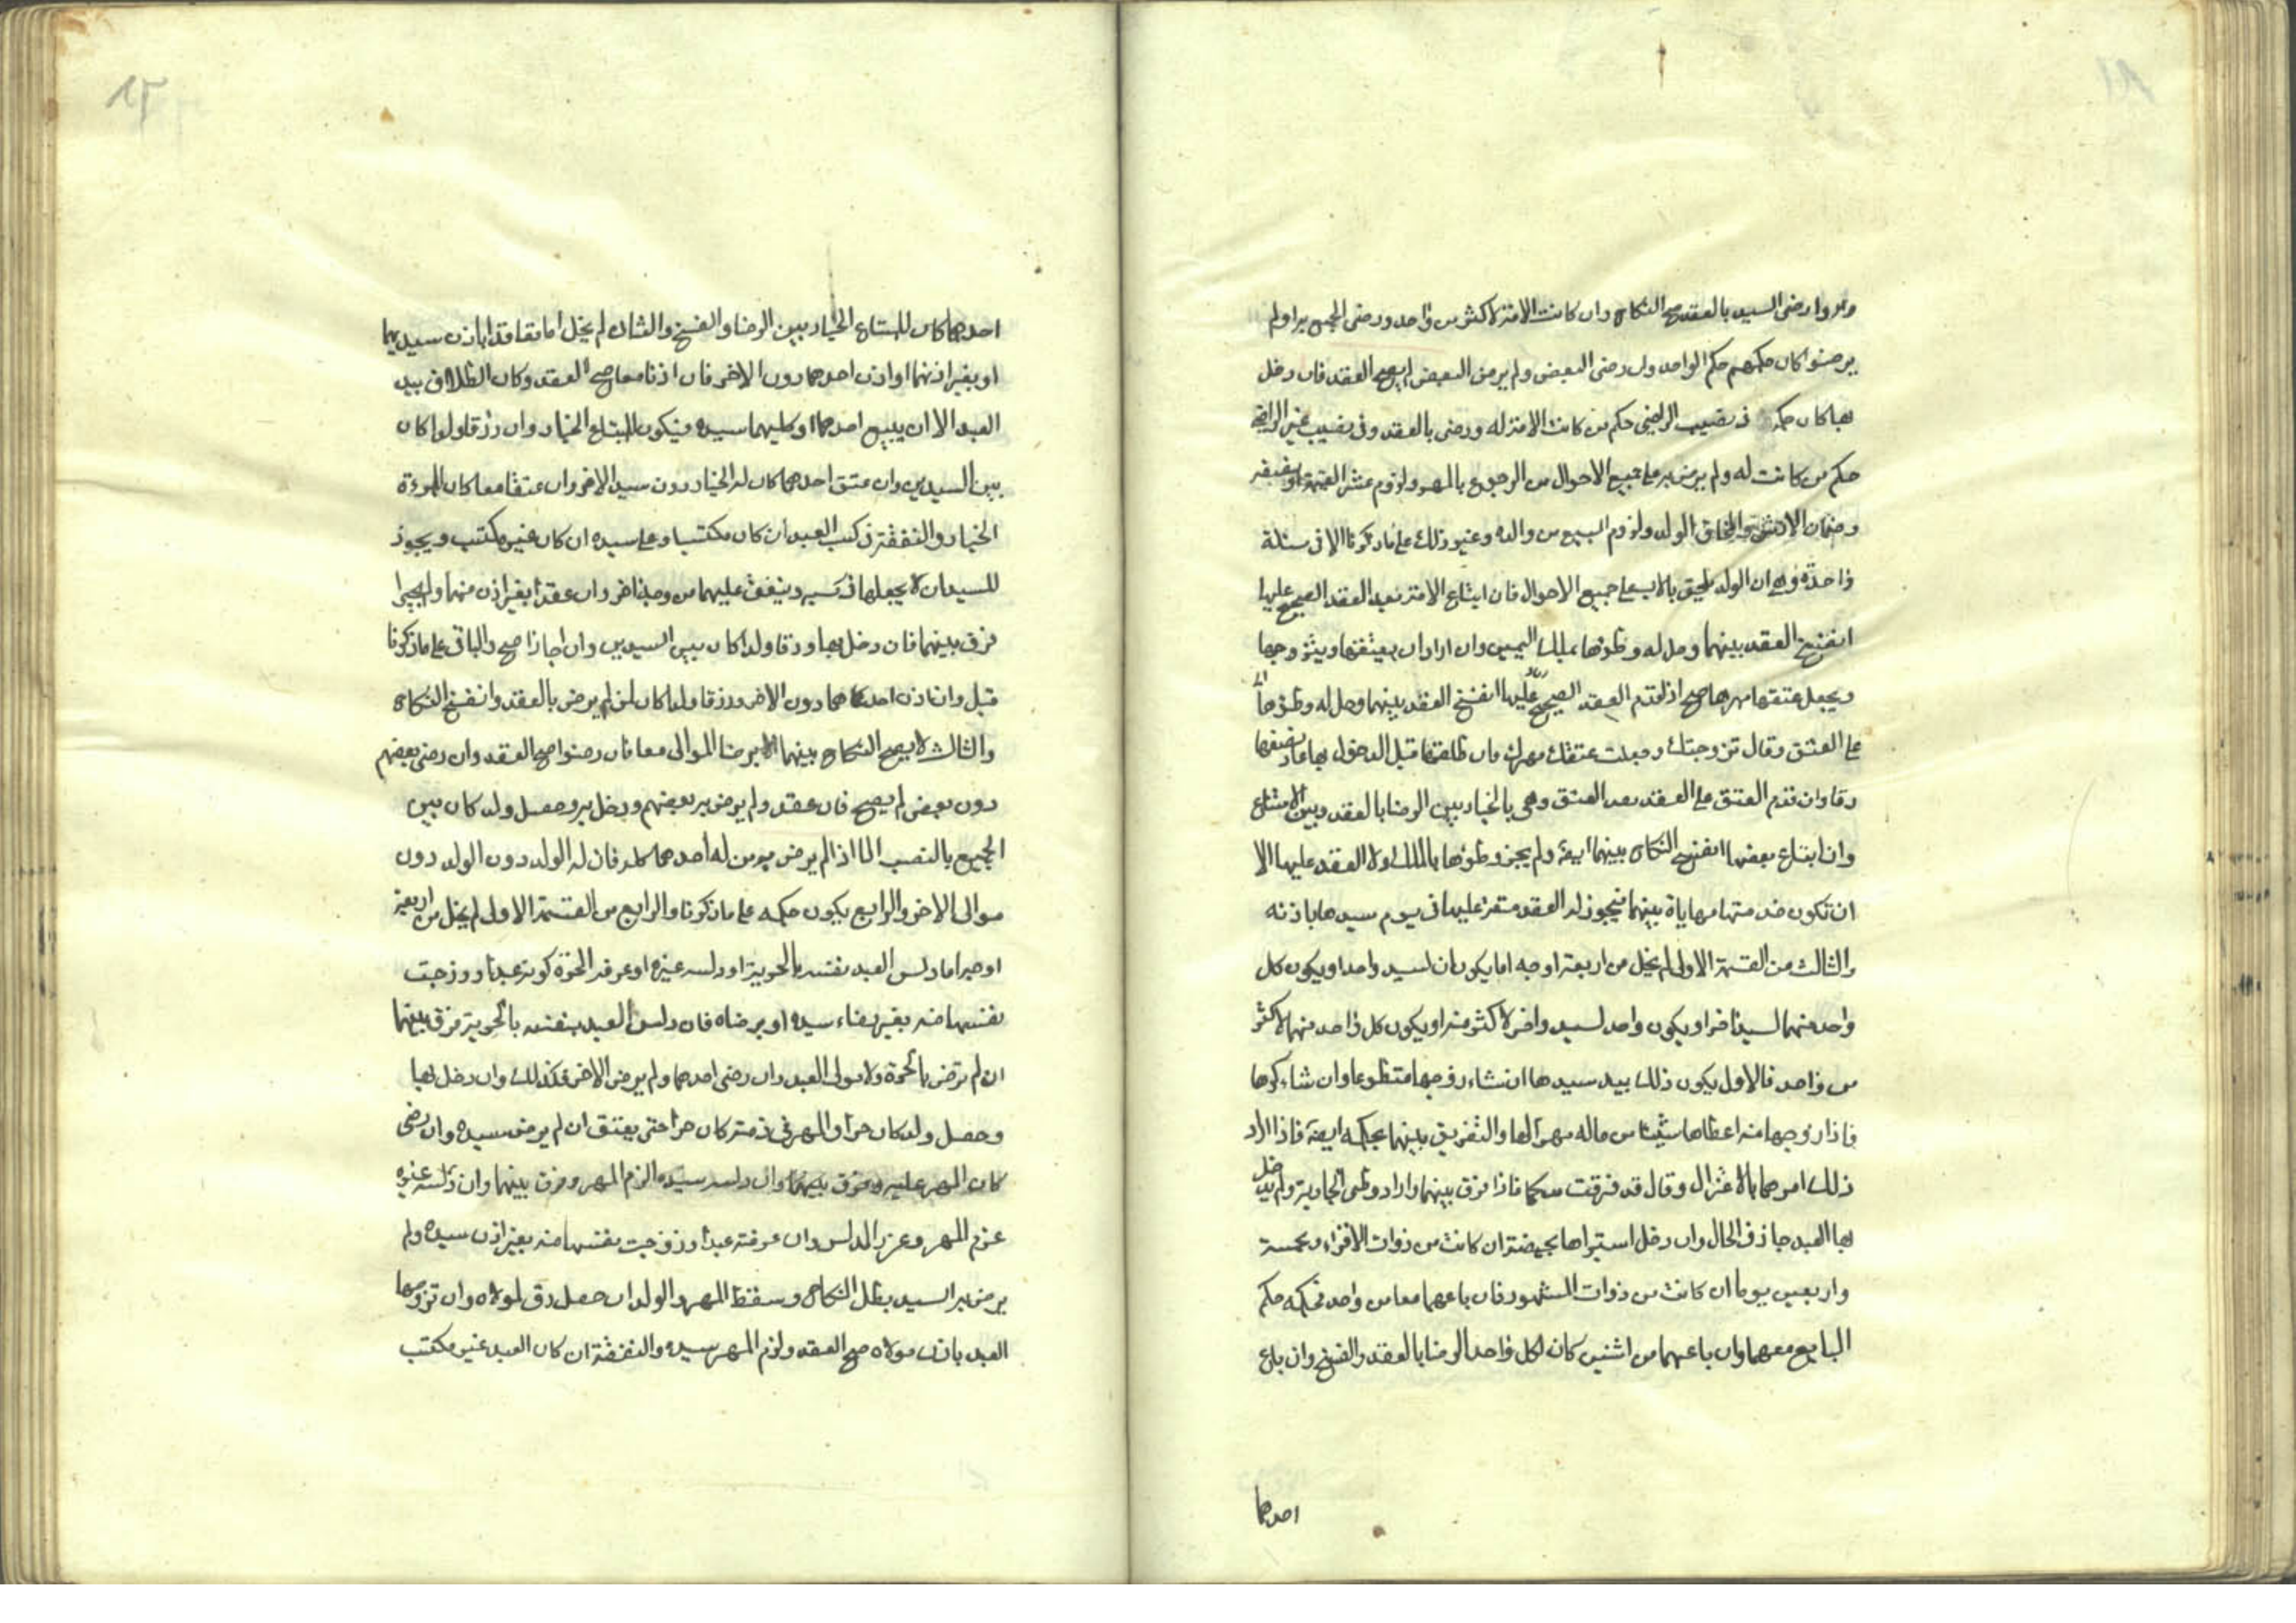 وان رضى السيد بالعقد صح النكاح وان كانت الامة لاكثر من واحد ورضى الجميع به او لم
يرضوا كان حكمهم حكم الواحد وان رضى البعض ولم يرض البعض لم يصح العقد فان دخل
بها كان حكمه فى نصيب الراضى حكم من كانت الامة له ورضى بالعقد وفى نصيب غير الراضى
حكم من كانت له ولم يرض به على جميع الاحوال من الرجوع بالمهر ولزوم عشر القيمة او نصفه
وضمان الارش والحاق الولد ولزوم السبيع من والده وغير ذلك على ما ذكرنا الا فى مسئلة
واحدة وهى ان الولد يلحق بالاب على جميع الاحوال فان ابتاع الامة بعد العقد الصحيح عليها
انفسخ العقد بينهما وحل له وطؤها بملك اليمين وان اراد ان يعتقها ويتزوجها
ويجعل عتقها مهرها صح اذا قدم العقد الصحيح عليها انفسخ العقد بينهما وحل له وطؤها
على العتق وقال تزوجتك وجعلت عتقك مهرك فان طلقها قبل الدخول بها عاد نصفها
رقا وان قدم العتق على العقد بعد العتق وهى بالخيار بين الرضا بالعقد وبين الامتناع
وان ابتاع بعضها انفسخ النكاح بينهما ايضا ولم يجز وطؤها بالملك ولا العقد عليها الا
ان تكون خدمتها مهاياة بينهما فيجوز له العقد متعة عليها فى يوم سيدها باذنه
والثالث من القسمة الاولى لم يخل من اربعة اوجه اما يكونان لسيد واحد او يكون كل
واحد منهما لسيد اخر او يكون واحد لسيد واخر لاكثر منه او يكون كل واحد منهما لاكثر
من واحد فالاول يكون ذلك بيد سيدها ان شاء زوجها متطوعا وان شاء كرها
فاذا زوجها منه اعطاها شيئا من ماله مهرا لها والتفريق بينهما بحكمه ايضا فاذا اراد
ذلك امرهما بالاعتزال وقال قد فرقت بينكما فاذا فرق بينهما واراد وطى الجارية ولم يدخل
بها العبد جاز فى الحال وان دخل استبراها بحيضة ان كانت من ذوات الاقراء وبخمسة
واربعين يوما ان كانت من ذوات الشهور فان باعهما معا من واحد فحكمه حكم
البايع معهما وان باعهما من اثنين كان لكل واحد الرضا بالعقد والفسخ وان باع
احدهما
احدهما كان للمبتاع الخيار بين الرضا والفسخ والثانى لم يخل اما تعاقدا باذن سيديهما
او بغير اذنهما او اذن احدهما دون الاخر فان اذنا معا صح العقد وكان الطلاق بيد
العبد الا ان يبيع احدهما او كليهما سيده فيكون للمبتاع الخيار وان رزقا ولدا كان
بين السيدين وان عتق احدهما كان له الخيار دون سيد الاخر وان عتقا معا كان للمرءة
الخيار والنفقة فى كسب العبد ان كان مكتسبا وعلى سيده ان كان غير مكتسب ويجوز
للسيد ان لا يجعلها فى كسبه وينفق عليهما من وجه اخر وان عقدا بغير اذن منهما ولم يجيزا
فرق بينهما فان دخل بها ورزقا ولدا كان بين السيدين وان اجازا صح والباقى على ما ذكرنا
قبل وان اذن احدهما دون الاخر ورزقا ولدا كان لمن لم يرض بالعقد وانفسخ النكاح
والثالث لا يصح النكاح بينهما الا برضا الموالى معا فان رضوا صح العقد وان رضى بعضهم
دون بعض لم يصح فان عقد ولم يرض به بعضهم ودخل بها وحصل ولد كان بين
الجميع بالنصب الا اذا لم يرض به من له احدهما كله فان له الولد دون الولد دون
موالى الاخر والرابع يكون حكمه على ما ذكرنا والرابع من القسمة الاولى لم يخل من اربعة
اوجه اما دلس العبد نفسه بالحرية او دلسه غيره او عرفه الحرة كونه عبدا وزوجت
نفسها منه بغير رضاء سيده او برضاه فان دلس العبد بنفسه بالحرية فرق بينهما
ان لم ترض الحرة ولا مولى العبد وان رضى احدهما ولم يرض الاخر فكذلك وان دخل بها
وحصل ولد كان حرا والمهر فى ذمته كان حرا حتى يعتق ان لم يرض سيده وان رضى
كان المهر عليه وفرق بينهما وان دلسه سيده الزم المهر وفرق بينهما وان دلسه غيره
غرم المهر وعزر المدلس وان عرفته عبدا وزوجت نفسها منه بغير اذن سيده ولم
يرض به السيد بطل النكاح وسقط المهر والولد ان حصل رق لمولاه وان تزوجها
العبد باذن مولاه صح العقد ولزم المهر سيده والنفقة ان كان العبد غير مكتسب